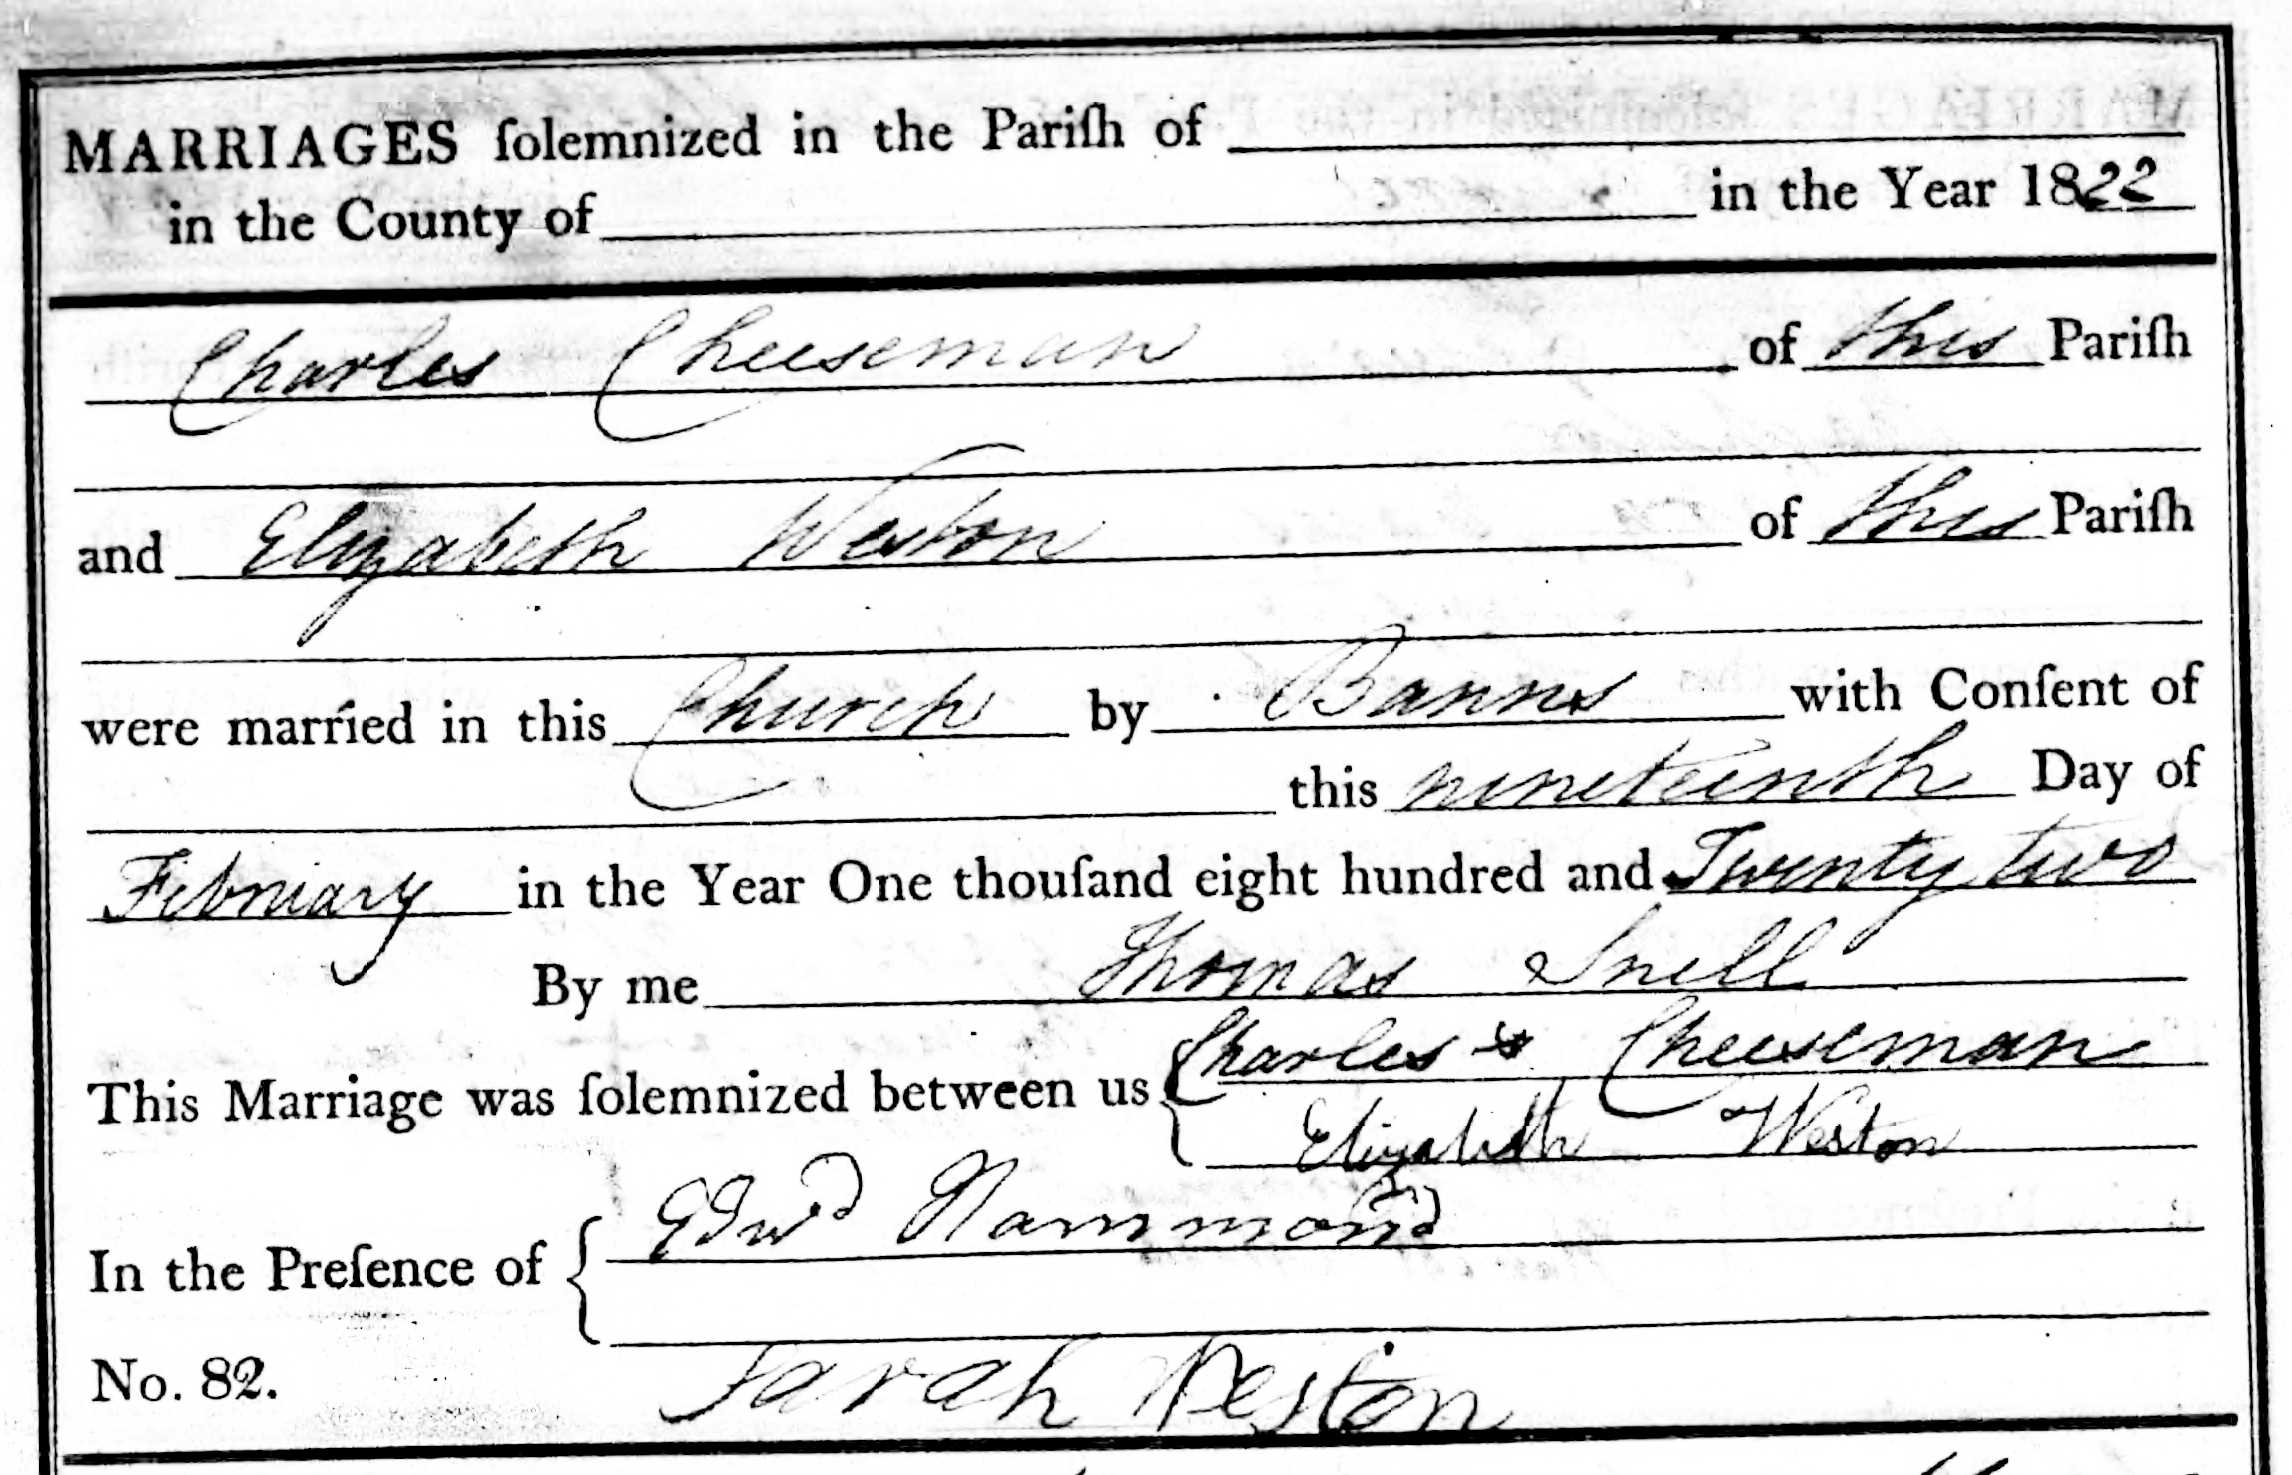 MARRIAGES ſolemnized in the Pariſh of
in the County of in the Year 1822
Charles Cheeseman of this Pariſh
and Elizabeth Weston of this Pariſh
were married in this Church by Banns with Conſent of
this nineteenth Day of
February in the Year One thouſand eight hundred and Twenty two
By me Thomas Snell
This Marriage was ſolemnized between us { Charles x Cheeseman
Elizabeth Weston
In the Preſence of { Edwd Hammond
No. 82. Sarah Weston